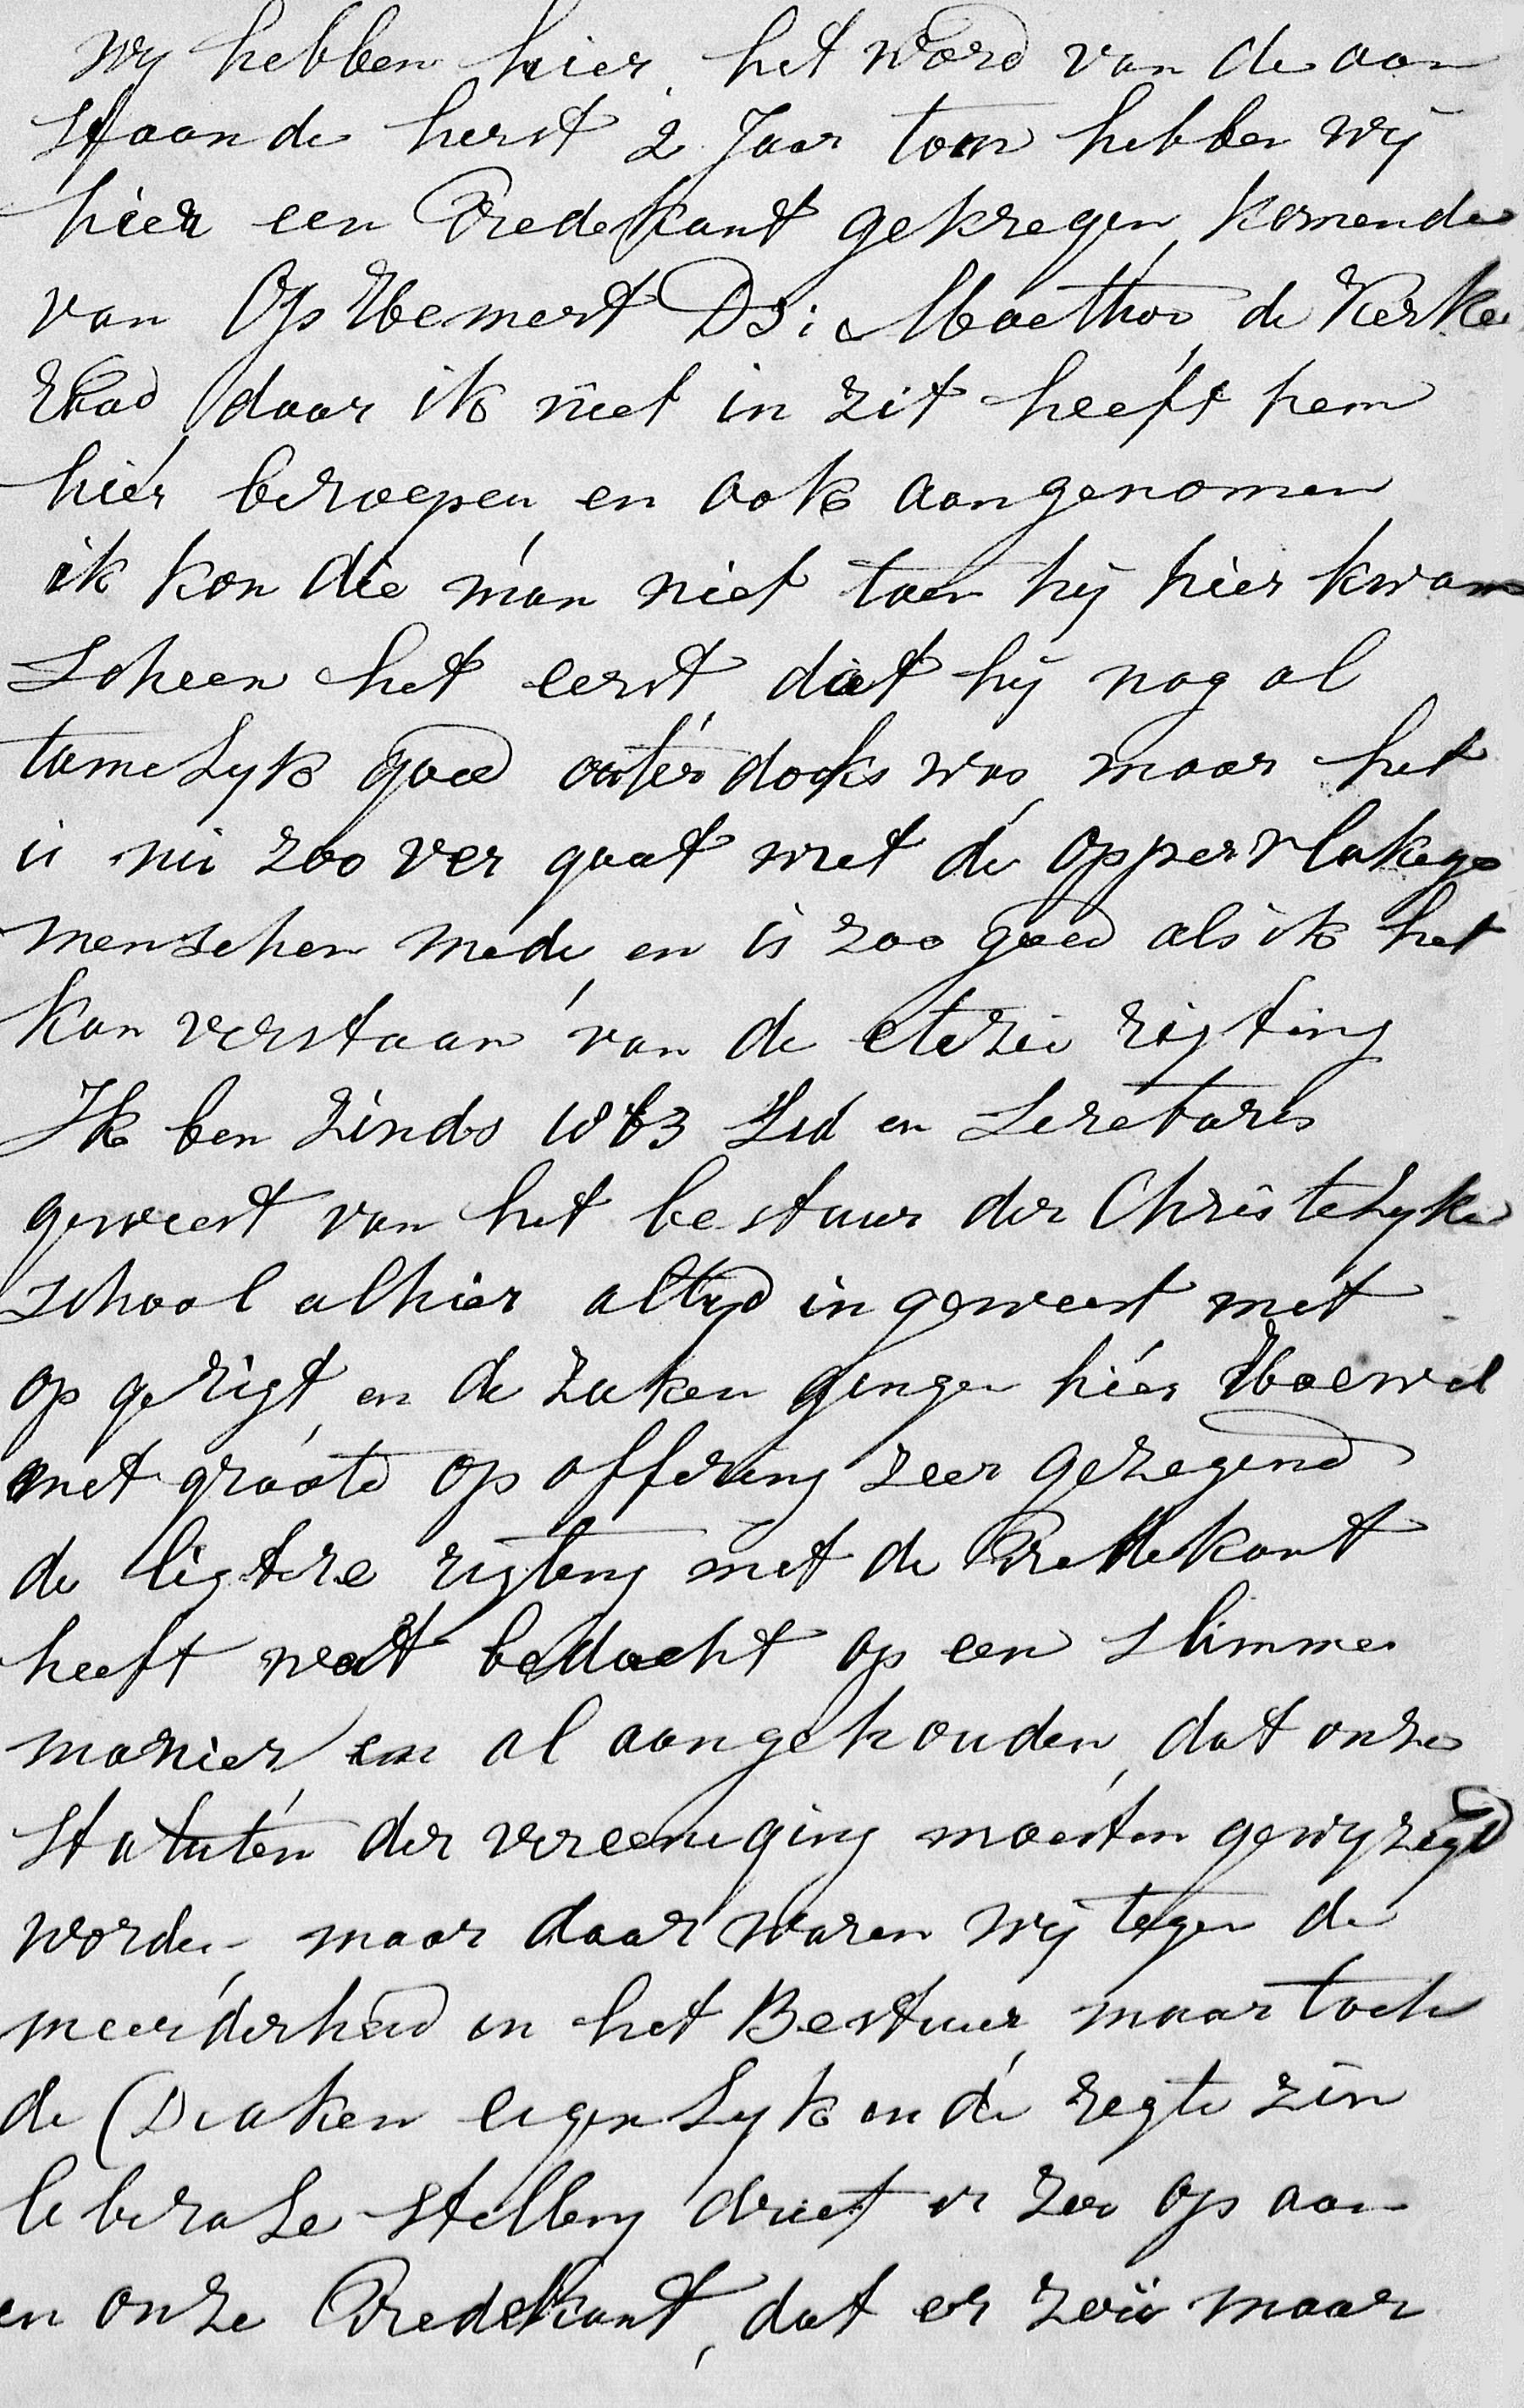 Wij hebben hier het word van de aan
staande herst 2 Jaar toen hebben wij
hier een Predekant gekregen, komende
van Op Hemert Ds: Maethor, de Kerke
Raad daar ik niet in zit heeft hem
hier beroepen en ook aangenomen
ik kon die man niet toen hij hier kwam
Scheen het eerst dat hij nog al
tamelyk goed orterdoks was, maar het
is nu zoo ver gaat met de oppervlakege
menschen mede, en is zoo goed als ik het
kan verstaan van de rigting
Ik ben Zinds 1863 Lid en Seretaris
geweest van het bestuur der Christelyke
School alhier altyd in geweest met
op gerigt, en de zaken gengen hier Hoewel
met groote op offering zeer gezegend
de ligtere rigteng met de Predekant
heeft wat bedacht op een slimme
manier en al aangehouden, dat onze
Statuten der vereeneging moesten gewyzegd
worden, maar daar waren wij tegen de
meerderheid in het Bestuur, maar toch
de Draken eigenlyk in de regte zin
leberale stelleng driet er zoo op aan
en onze Predekant, dat er zoo maar